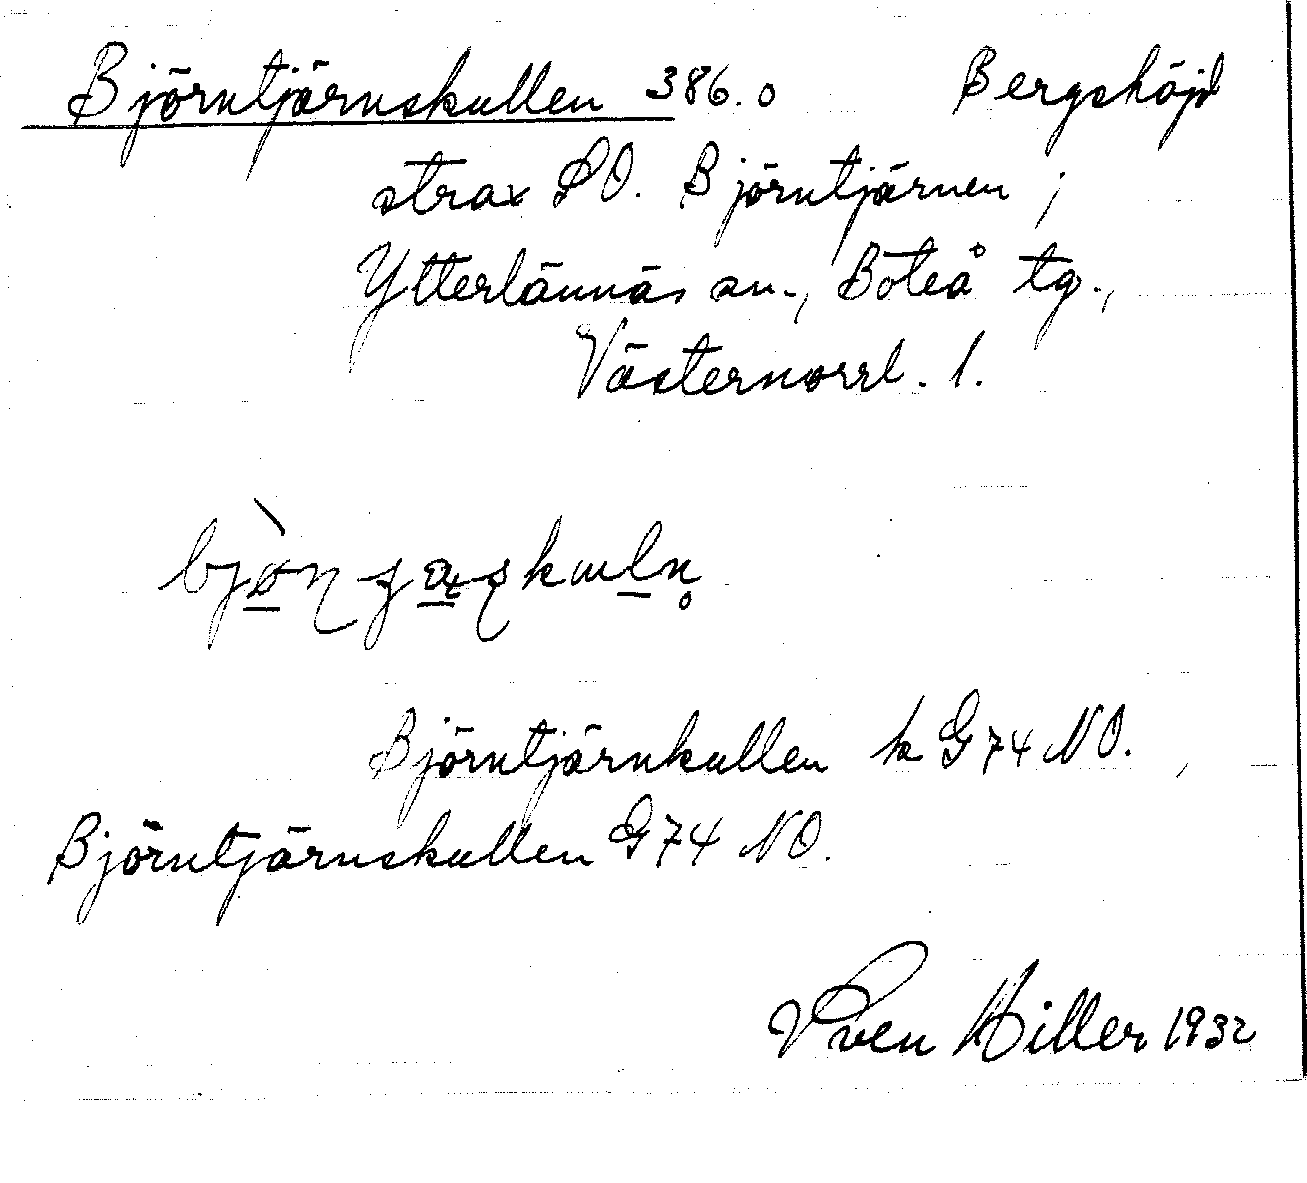 Björntjärnskullen 386.0 Bergshöjd
strax SO. Björntjärnen ;
Ytterlännäs sn., Boteå tg.,
Västernorrl. l.
Björntjärnkullen k G74 NO.
Björntjärnskullen G74 NO.
Sven Hiller 1932